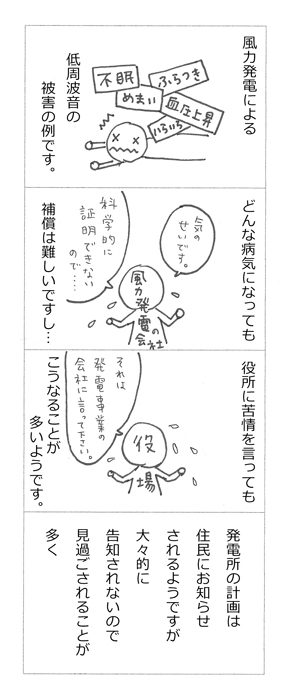 風力発電による
不眠
ふらつき
めまい
血圧上昇
いらいら
低周波音の
被害の例です。
どんな病気になっても
気の
せいです。
風力
発電の
会社
科学的に
証明できない
ので……
補償は難しいですし…
役所に苦情を言っても
役場
それは
発電事業の
会社に言って下さい。
こうなることが
多いようです。
発電所の計画は
住民にお知らせ
されるようですが
大々的に
告知されないので
見過ごされることが
多く